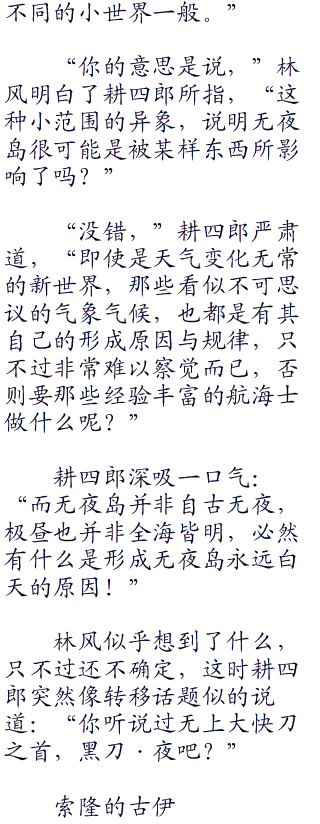 不同的小世界一般。”
“你的意思是说，”林
风明白了耕四郎所指，“这
种小范围的异象，说明无夜
岛很可能是被某样东西所影
响了吗？”
“没错，”耕四郎严肃
道，“即使是天气变化无常
的新世界，那些看似不可思
议的气象气候，也都是有其
自己的形成原因与规律，只
不过非常难以察觉而已，否
则要那些经验丰富的航海士
做什么呢？”
耕四郎深吸一口气：
“而无夜岛并非自古无夜，
极昼也并非全海皆明，必然
有什么是形成无夜岛永远白
天的原因！”
林风似乎想到了什么，
只不过还不确定，这时耕四
郎突然像转移话题似的说
道：“你听说过无上大快刀
之首，黑刀·夜吧？”
索隆的古伊